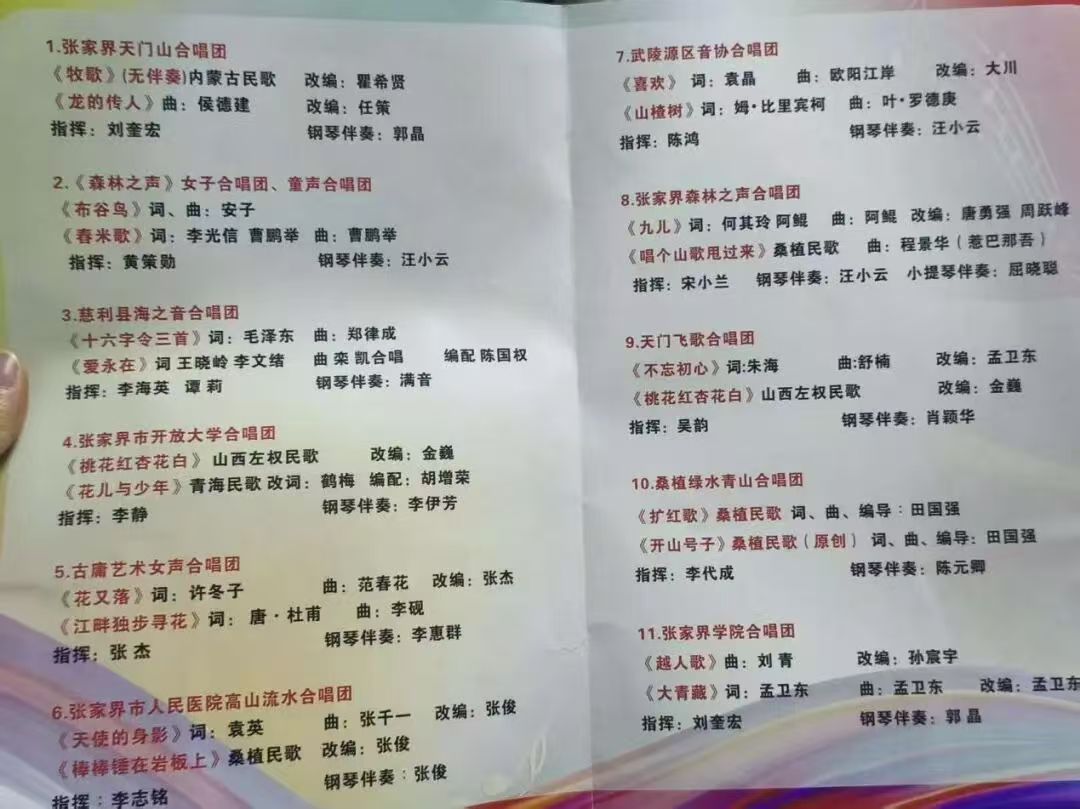 1.张家界天门山合唱团
《牧歌》(无伴奏)内蒙古民歌 改编：瞿希贤
《龙的传人》曲：侯德建 改编：任策
指挥：刘奎宏 钢琴伴奏：郭晶
2.《森林之声》女子合唱团、童声合唱团
《布谷鸟》词、曲：安子
《舂米歌》词：李光信 曹鹏举 曲：曹鹏举
指挥：黄策勋 钢琴伴奏：汪小云
3.慈利县海之音合唱团
《十六字令三首》词：毛泽东 曲：郑律成
《爱永在》词 王晓岭 李文绪 曲 栾 凯合唱 编配 陈国权
指挥：李海英 谭 莉 钢琴伴奏：满音
4.张家界市开放大学合唱团
《桃花红杏花白》山西左权民歌 改编：金巍
《花儿与少年》青海民歌 改词：鹤梅 编配：胡增荣
指挥：李静 钢琴伴奏：李伊芳
5.古庸艺术女声合唱团
《花又落》词：许冬子 曲：范春花 改编：张杰
《江畔独步寻花》词：唐·杜甫 曲：李砚
指挥：张 杰 钢琴伴奏：李惠群
6.张家界市人民医院高山流水合唱团
《天使的身影》词：袁英 曲：张千一 改编：张俊
《棒棒锤在岩板上》桑植民歌 改编：张俊
指挥：李志铭 钢琴伴奏：张俊
7.武陵源区音协合唱团
《喜欢》 词：袁晶 曲：欧阳江岸 改编：大川
《山楂树》词：姆·比里宾柯 曲：叶·罗德庚
指挥：陈鸿 钢琴伴奏：汪小云
8.张家界森林之声合唱团
《九儿》词：何其玲 阿鲲 曲：阿鲲 改编：唐勇强 周跃峰
《唱个山歌甩过来》桑植民歌 曲：程景华（惹巴那吾）
指挥：宋小兰 钢琴伴奏：汪小云 小提琴伴奏：屈晓聪
9.天门飞歌合唱团
《不忘初心》词:朱海 曲:舒楠 改编：孟卫东
《桃花红杏花白》山西左权民歌 改编：金巍
指挥：吴韵 钢琴伴奏：肖颖华
10.桑植绿水青山合唱团
《扩红歌》桑植民歌 词、曲、编导：田国强
《开山号子》桑植民歌（原创） 词、曲、编导：田国强
指挥：李代成 钢琴伴奏：陈元卿
11.张家界学院合唱团
《越人歌》曲：刘 青 改编：孙宸宇
《大青藏》词：孟卫东 曲：孟卫东 改编：孟卫东
指挥：刘奎宏 钢琴伴奏：郭 晶